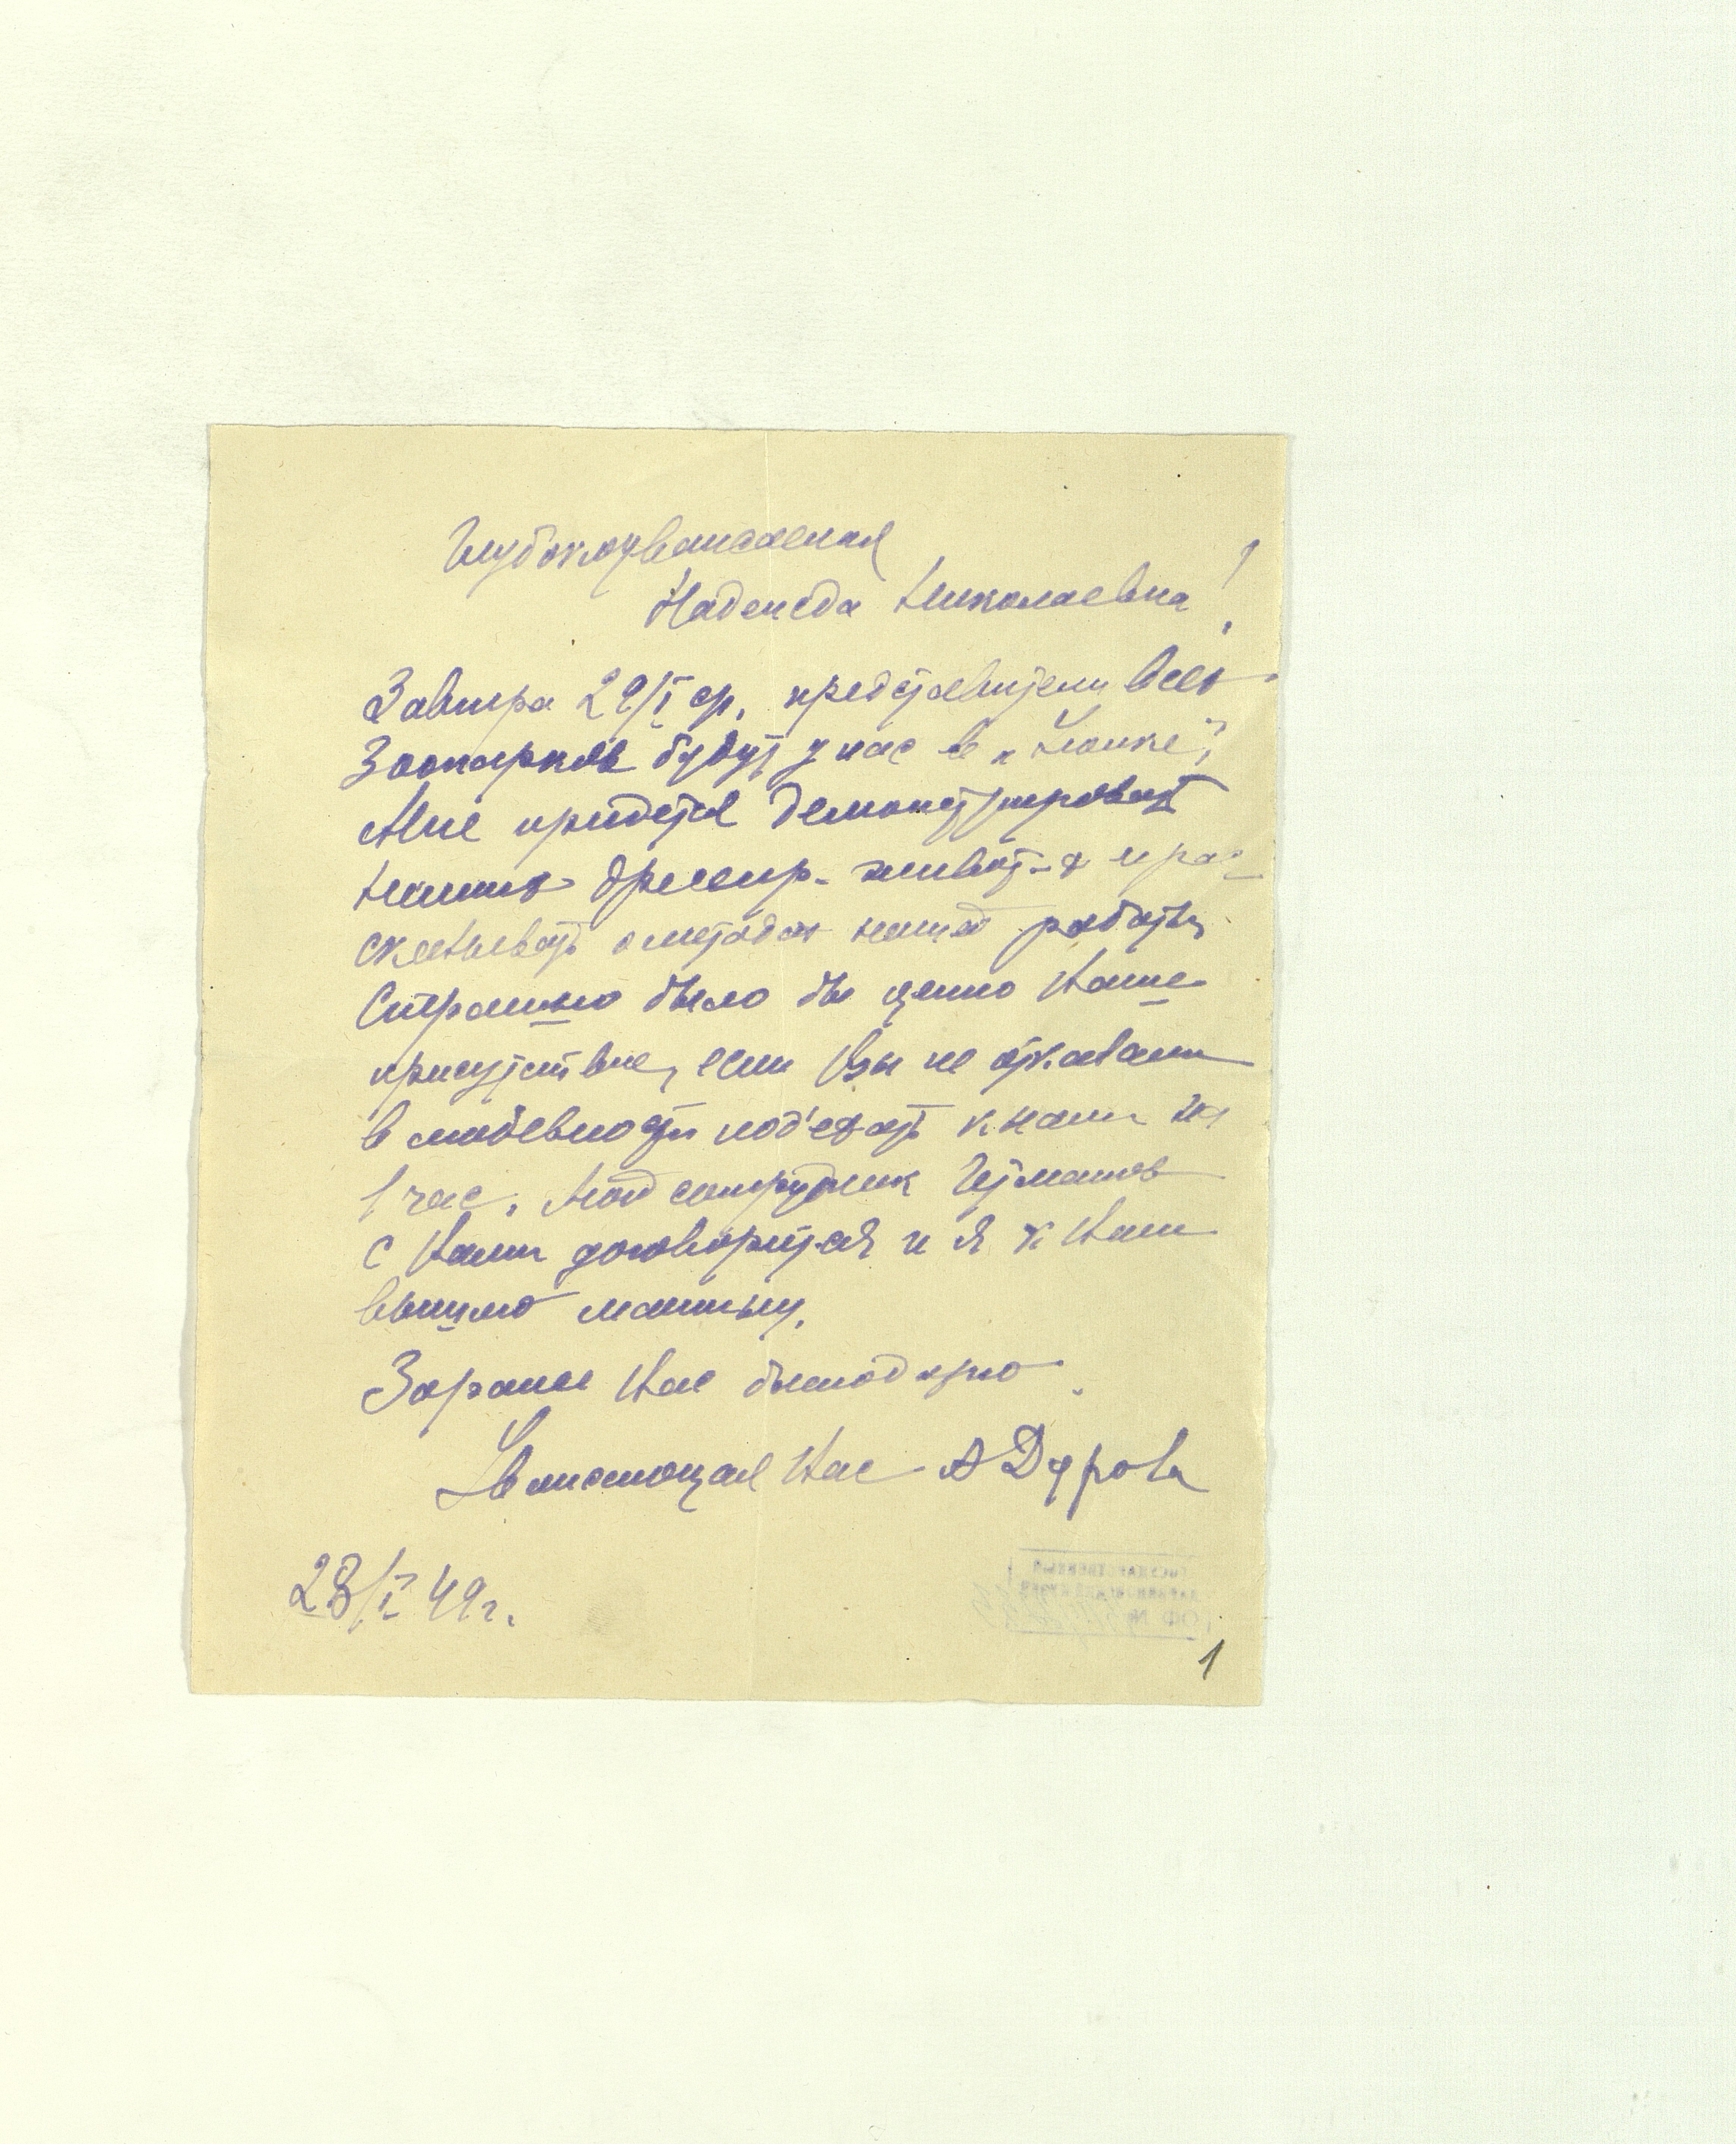 Глубокоуважаемая
Надежда Николаевна!
Завтра 29/I ср. представители всех
Зоопарков будут у нас в "Уголке",
Мне придется демонстрировать
наших дрессир. живот-х и рас-
сказывать о методах нашей работы
Страшно было бы ценно Ваше
присутствие, если Вы не отказали
в любезности под'ехать к нам на
1 час. Мой сотрудник
с Вами договорится и я к Вам
вышлю машину.
Заранее Вас благодарю.
Уважающая Вас А Дурова
28/I 49 г.
ГОСУДАРСТВЕННЫЙ
ДАРВИНОВСКИЙ МУЗЕЙ
ОФ №
1